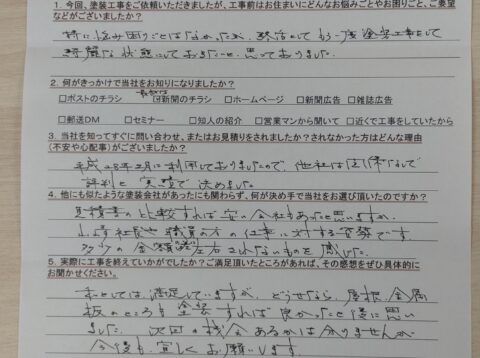 1. 今回、塗装工事をご依頼いただきましたが、工事前はお住まいにどんなお悩みごとやお困りごと、ご要望
などがございましたか？
特に悩み困りごとはなかったが、終活としてもう一度塗装工事をして
綺麗な状態にしておきたいと思っておりました。
2. 何がきっかけで当社をお知りになりましたか？
□ポストのチラシ □新聞のチラシ □ホームページ □新聞広告 □雑誌広告
□郵送DM □セミナー □知人の紹介 □営業マンから聞いて □近くで工事をしていたから
3. 当社を知ってすぐに問い合わせ、またはお見積りをされましたか？されなかった方はどんな理由
（不安や心配事）がございましたか？
平成28年2月に利用しておりましたので、他社は
評判と実績で決めました。
4. 他にも似たような塗装会社があったにも関わらず、何が決め手で当社をお選び頂いたのですか？
見積書の比較すれば安い会社もあったと思いますが、
社長や職員の方の仕事に対する姿勢です。
多少の金額に左右されないものを感じた。
5. 実際に工事を終えていかがでしたか？ご満足頂いたところがあれば、その感想をぜひ具体的に
お聞かせください。
私としては満足していますが、どうせなら、屋根、金属
板のところも塗装すれば良かったと後に思い
ました。次回の機会あるかは分りませんが
今後も宜しくお願いします。